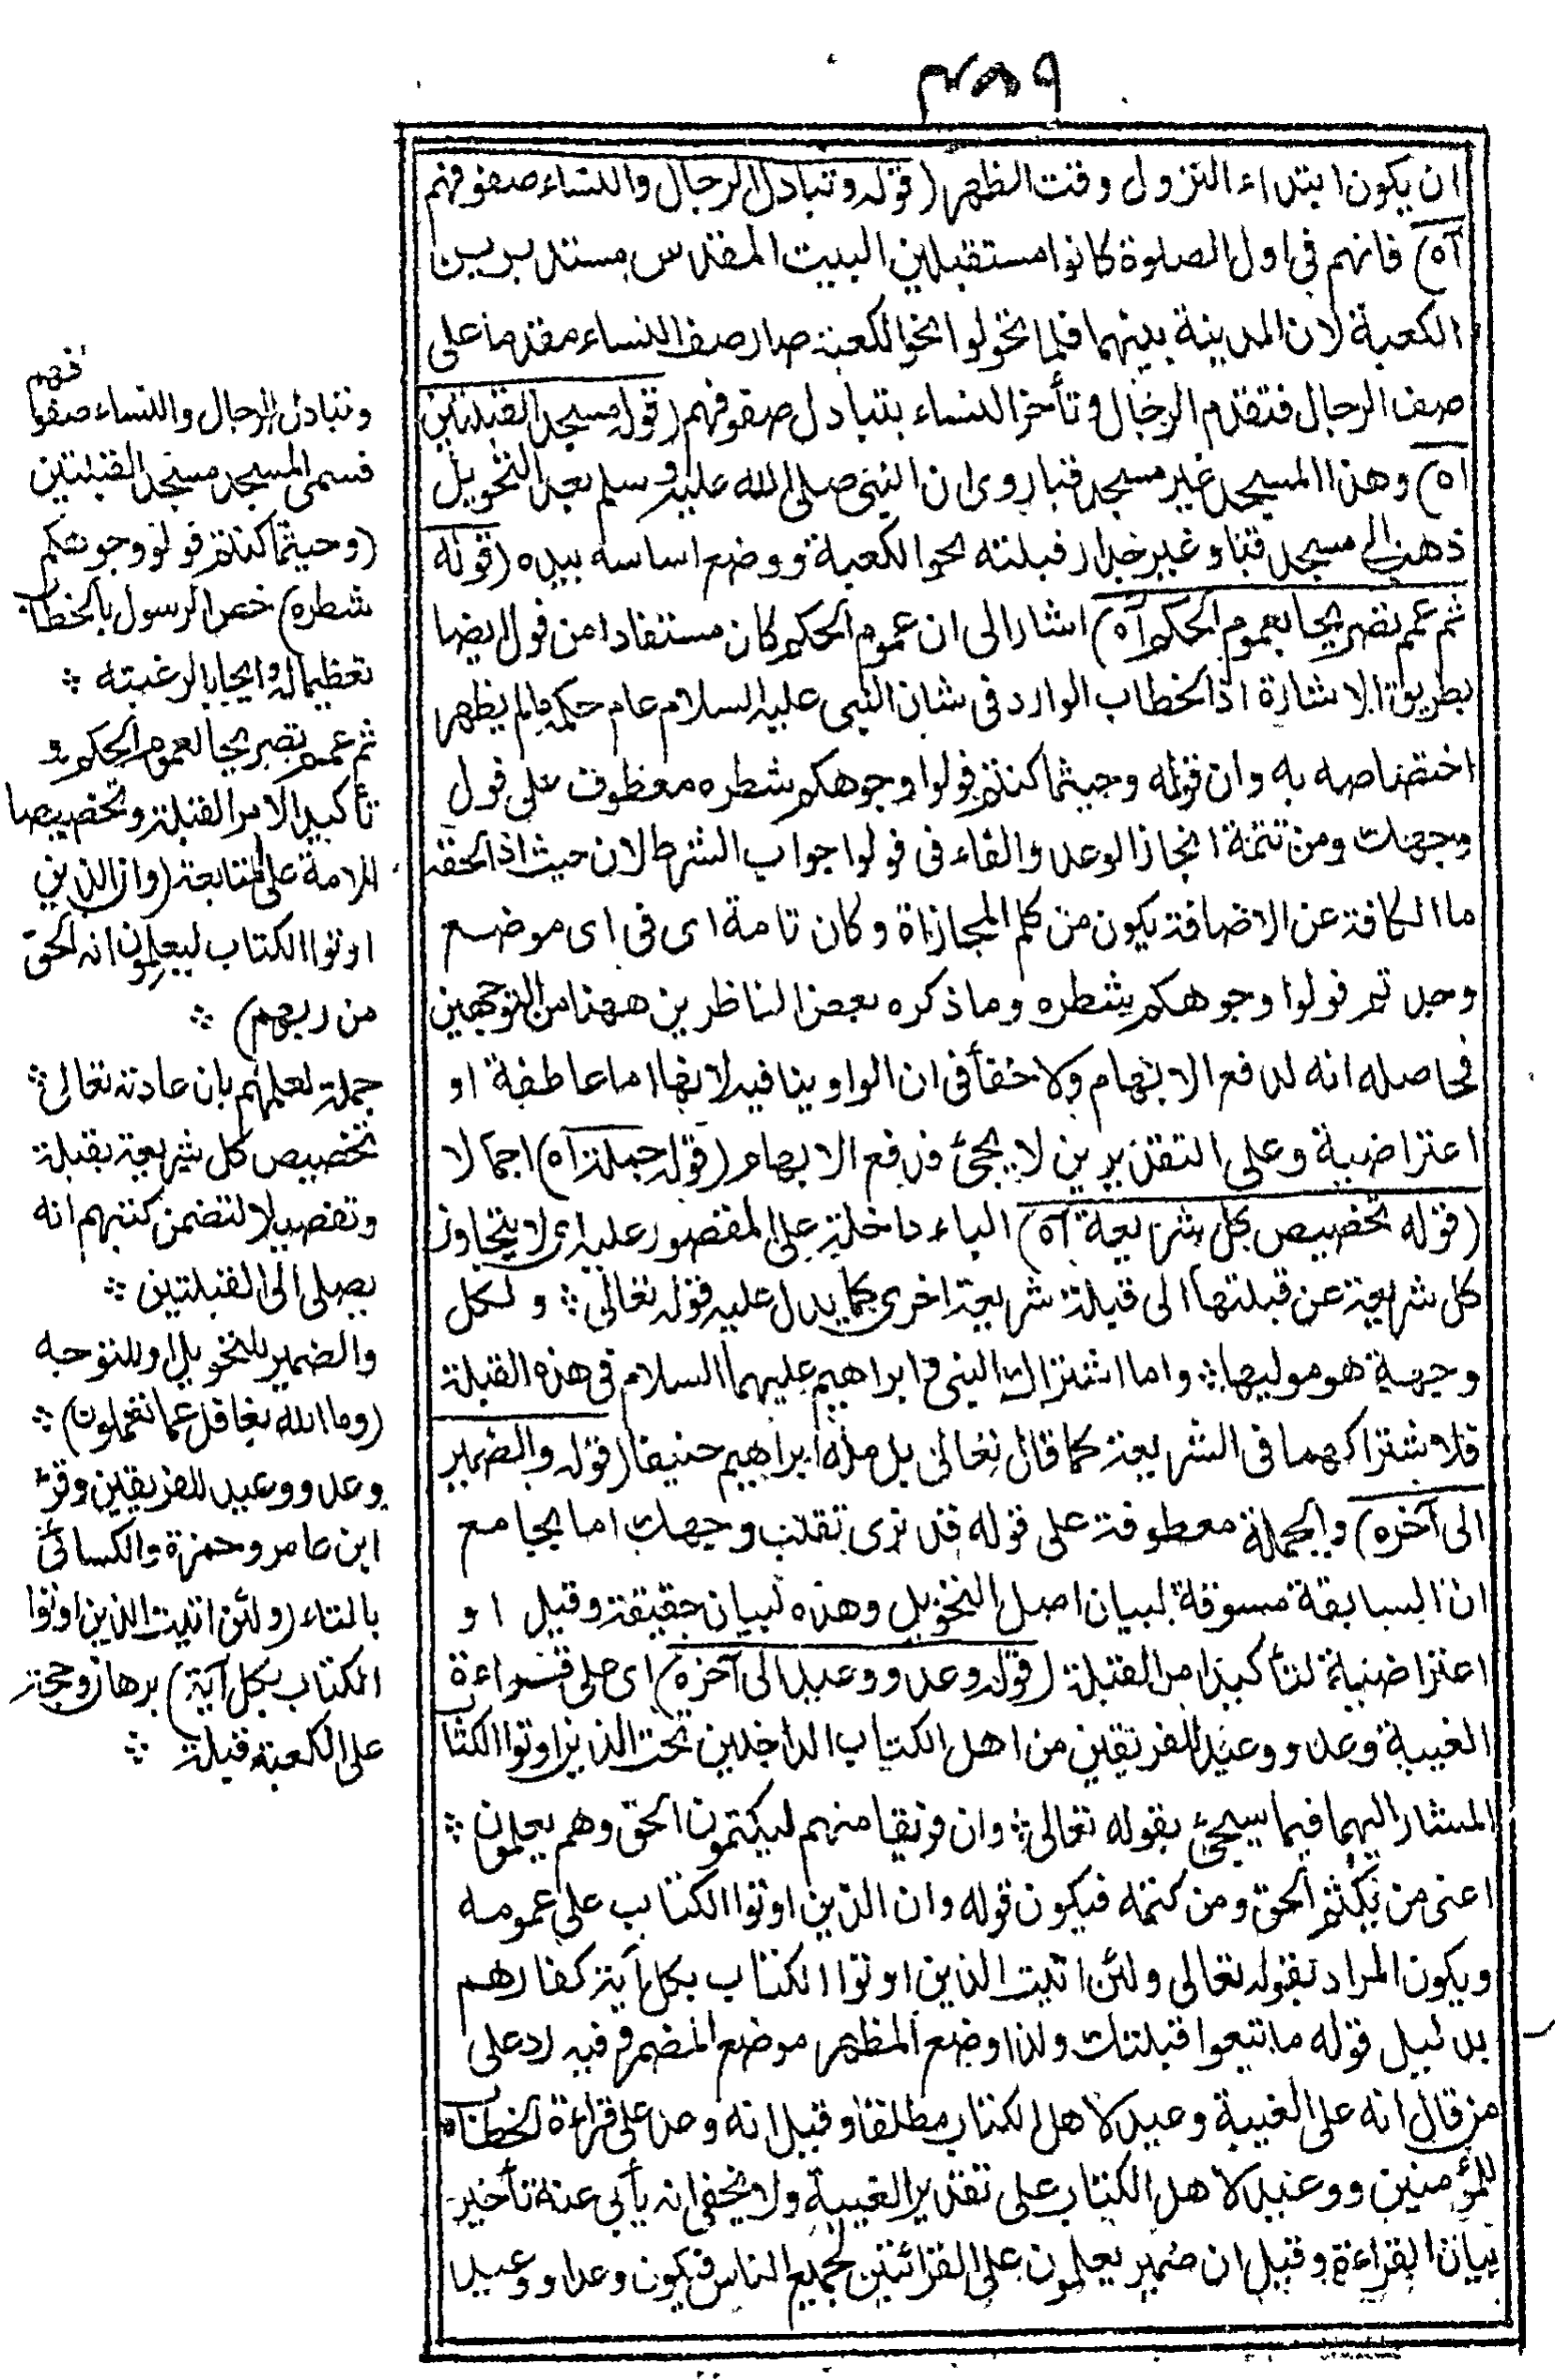 ٤٥٩
ان يكون ابتداء النزول وقت الظهر (قوله وتبادل الرجال والنساء صفوفهم
آه) فانهم في اول الصلوة كانوا مستقبلين البيت المقدس مستدبرين
الكعبة لان المدينة بينهما فلما تحولوا نحو الكعبة صار صف النساء مقدما على
صف الرجال فتقدم الرجال وتأخر النساء بتبادل صفوفهم (قوله مسجد القبلتين
اه) وهذا المسجد غير مسجد قبا روى ان النبي صلى الله عليه وسلم بعد التحويل
ذهب الى مسجد قبا وغير جدار قبلته نحو الكعبة ووضع اساسه بيده (قوله
ثم عمم تصريحا بعموم الحكم آه) اشار الى ان عموم الحكم كان مستفادا من فول ايضا
بطريق الاشارة اذ الخطاب الوارد في شان النبي عليه السلام عام حكمه مالم يظهر
اختصاصه به وان قوله وحيثما كنتم فولوا وجوهكم شطره معطوف على فول
وجهك ومن تتمة انجاز الوعد والفاء في فولوا جواب الشرط لان حيث اذا لحقه
ما الكافة عن الاضافة يكون من كلم المجازاة وكان تامة اى في اى موضع
وجدتم فولوا وجوهكم شطره وما ذكره بعض الناظرين ههنا من التوجهين
فحاصله انه لدفع الابهام ولا خفأ في ان الواو ينافيه لانها اما عاطفة او
اعتراضية وعلى التقديرين لا يجئ فى رفع الابهام (قوله جملة اه) اجمالا
(قوله تخصيص كل شريعة آه) الباء داخلة على المقصور عليه اى لا يتجاوز
كل شريعة عن قبلتها الى قبلة شريعة اخرى كما يدل عليه قوله تعالى ؞ ولكل
وجهة هو موليها ؞ واما اشتراك النبي و ابراهيم عليهما السلام في هذه القبلة
فلاشتراكهما في الشريعة كما قال تعالى بل ملة ابراهيم حنيفا (قوله والضمير
الى آخره) والجملة معطوفة على قوله قد نرى تقلب وجهك اما بجامع
ان السابقة مسوقة لبيان اصل التحويل وهذه لبيان حقيقته وقيل او
اعتراضية لتأكيد امر القبلة (قوله وعد ووعيد الى آخره) اى على قراءة
الغيبة وعد ووعيد للفريقين من اهل الكتاب الداخلين تحت الذين اوتوا الكتاب
المشار اليهما فيما سيجئ بقوله تعالى ؞ وان فريقا منهم ليكتمون الحق وهم يعلمون ؞
اعنى من يكتم الحق ومن كتمه فيكون قوله وان الذين اوتوا الكتاب على عمومه
ويكون المراد بقوله تعالى ولئن اتيت الذين اوتوا الكتاب بكل آية كفارهم
بدليل قوله ما تبعوا قبلتك ولذا وضع المظهر موضع المضمر وفيه رد على
من قال انه على الغيبة وعيد لاهل الكتاب مطلقا وقيل انه وعد على قراءة الخطاب
للمؤمنين ووعيد لاهل الكتاب على تقدير الغيبة ولا يخفى انه يأبى عنه تأخير
بيان القراءة وقيل ان ضمير يعلمون على القرائتين لجميع الناس فيكون وعدا ووعيدا
وتبادل الرجال والنساء صفوفهم
فسمى المسجد مسجد القبلتين
(وحيثما كنتم فولوا وجوهكم
شطره) خص الرسول بالخطاب
تعظيما له وايجابا لرغبته ؞
ثم عمم تصريحا لعموم الحكم و
تأكيدا لامر القبلة وتخصيصا
للامة على المتابعة (وان الذين
اوتوا الكتاب ليعلمون انه الحق
من ربهم) ؞
جملة لعلمهم بان عادته تعالى ؞
تخصيص كل شريعة بقبلة
وتفصيلا لتضمن كتبهم انه
يصلى الى القبلتين ؞
والضمير للتحويل او للتوجه
(وما الله بغافل عما تعملون) ؞
وعد ووعيد للفريقين وقرأ
ابن عامر وحمزة والكسائى
بالتاء (ولئن اتيت الذين اوتوا
الكتاب بكل آية) برهان وحجة
على الكعبة قبلة ؞